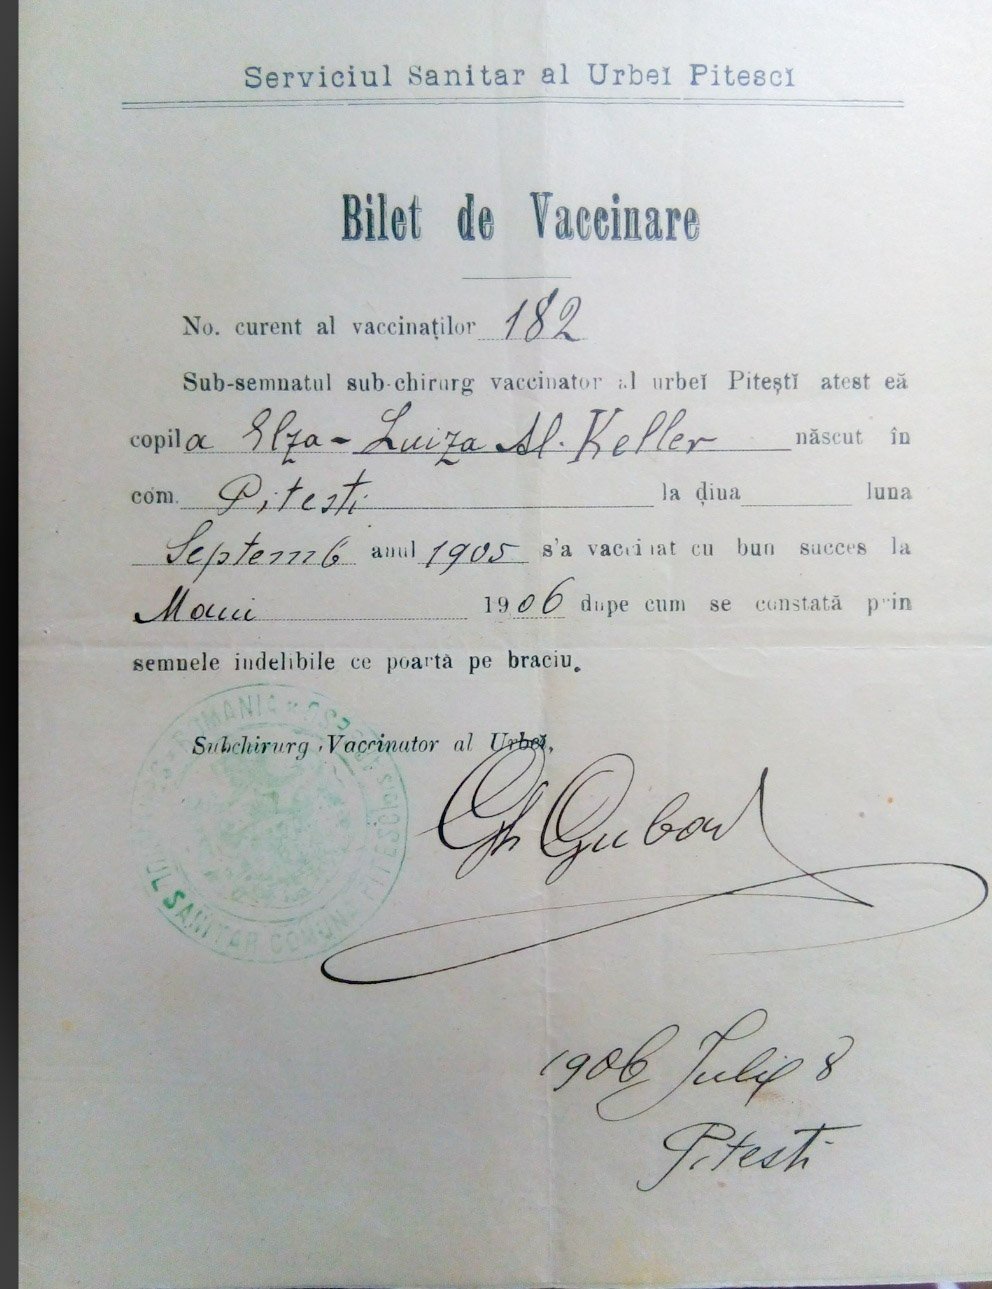 Serviciul Sanitar al Urbeĭ Pitescĭ
Bilet de Vaccinare
No. curent al vaccinaților 182
Sub-semnatul sub-chirurg vaccinator al urbeĭ Piteștĭ atest că
copila Elza-Luiza Al. Keller născut în
com. Pitesti la diua luna
Septemb anul 1905 s'a vaccinat cu bun succes la
Maiu 1906 dupe cum se constată prin
semnele indelibile ce poartă pe braciu.
Subchirurg Vaccinator al Urbeĭ,
ROMANIA
SANITAR COMUNA PITESCI
Gh
1906 Julie 8
Pitesti